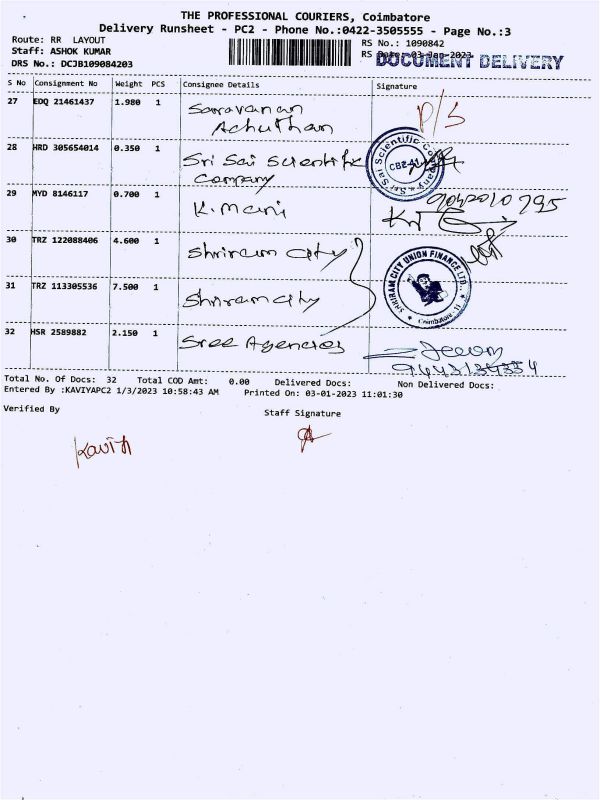 THE PROFESSIONAL COURIERS, Coimbatore
Delivery Runsheet - PC2 - Phone No.:0422-3505555 - Page No.:3
Route: RR LAYOUT
RS No.: 1090842
Staff: ASHOK KUMAR
RS Date: 03-Jan-2023
DOCUMENT DELIVERY
DRS No.: DCJB109084203
S No Consignment No Weight PCS Consignee Details Signature
27 EDQ 21461437 1.980 1 Saravanan
Achuthan
P/S
28 HRD 305654014 0.350 1 Sri Sai Scientific
Company
Sri Sai Scientific Company
29 MYD 8146117 0.700 1 K. Mani
30 TRZ 122088406 4.600 1 Shriram City
SHRIRAM CITY UNION FINANCE LTD.,
Coimbatore - 11
31 TRZ 113305536 7.500 1 Shriram City
32 HSR 2589882 2.150 1 Sree Agencies
Total No. Of Docs: 32 Total COD Amt: 0.00 Delivered Docs: Non Delivered Docs:
Entered By :KAVIYAPC2 1/3/2023 10:58:43 AM Printed On: 03-01-2023 11:01:30
Verified By
Staff Signature